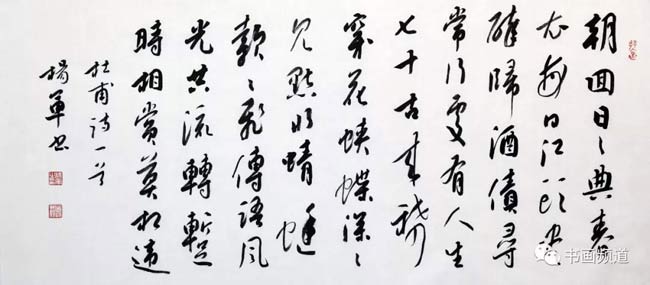 朝囬日〻典春
衣每日江頭尽
醉歸酒債尋
常行處有人生
七十古来稀
穿花蛱蝶深〻
见點水蜻蜓
款〻飛傳語風
光共流轉暫
時相賞莫相違
杜甫詩一首
楊軍书
书画频道